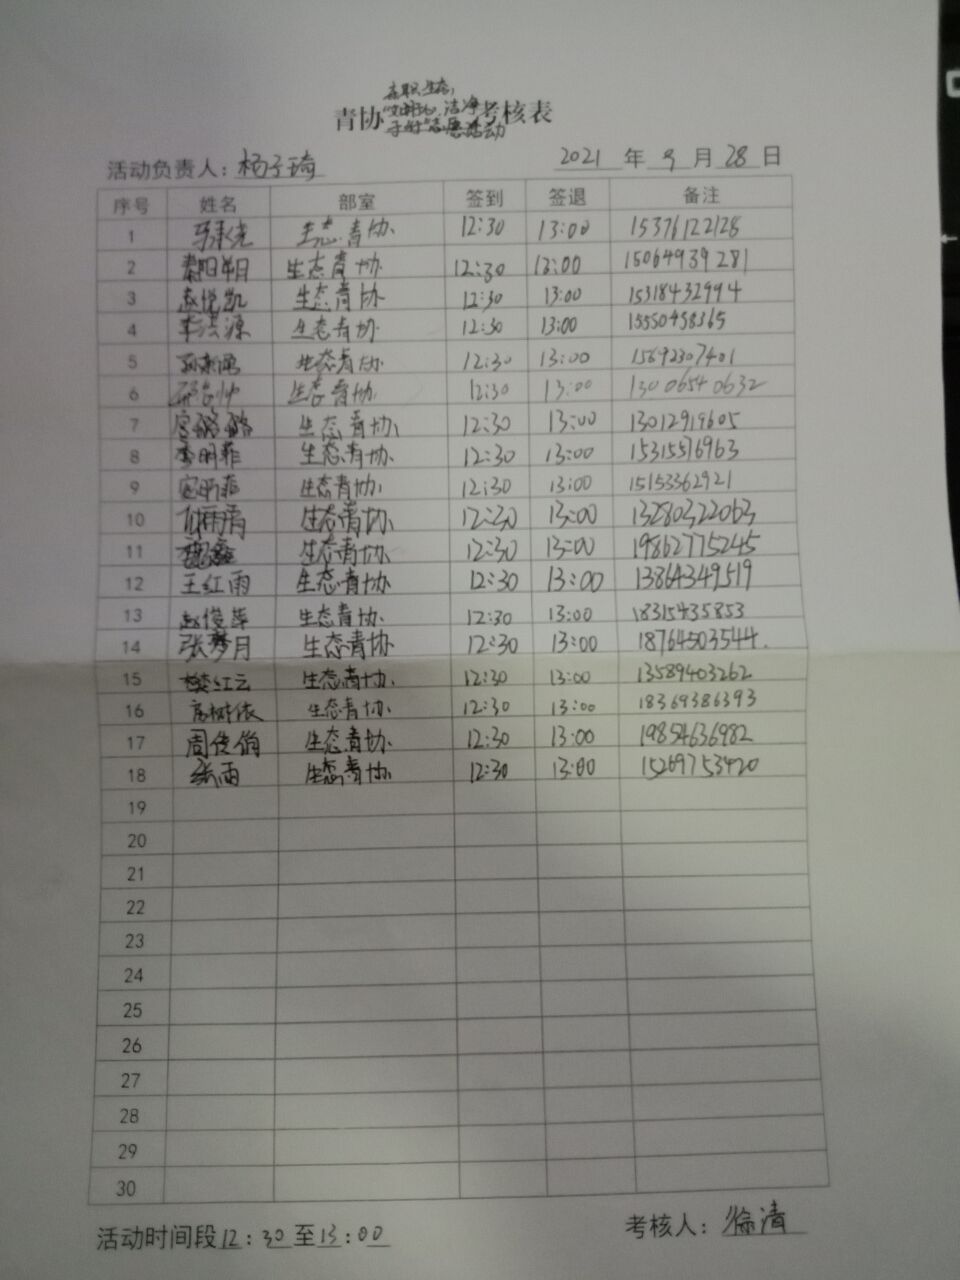 东职生态，
青协"文明 洁净考核表
活动
活动负责人：杨子琦 2021 年 9 月 28 日
序号 姓名 部室 签到 签退 备注
1 生态青协 12:30 13:00 15376122128
2 生态青协 12:30 13:00 15064939281
3 赵悦凯 生态青协 12:30 13:00 15318432994
4 李洪源 生态青协 12:30 13:00 15550458365
5 生态青协 12:30 13:00 15692307401
6 生态青协 12:30 13:00 13006540632
7 宫璐璐 生态青协 12:30 13:00 13012919605
8 李明菲 生态青协 12:30 13:00 15315516963
9 生态青协 12:30 13:00 15153362921
10 生态青协 12:30 13:00 13280322063
11 生态青协 12:30 13:00 19862775245
12 王红雨 生态青协 12:30 13:00 13864349519
13 赵俊萍 生态青协 12:30 13:00 18315435853
14 张梦月 生态青协 12:30 13:00 18764503544.
15 樊红云 生态青协 12:30 13:00 13589403262
16 高树依 生态青协 12:30 13:00 18369386393
17 周俊俏 生态青协 12:30 13:00 19854636982
18 张雨 生态青协 12:30 13:00 15269753420
19
20
21
22
23
24
25
26
27
28
29
30
活动时间段12：30至13：00 考核人：徐清